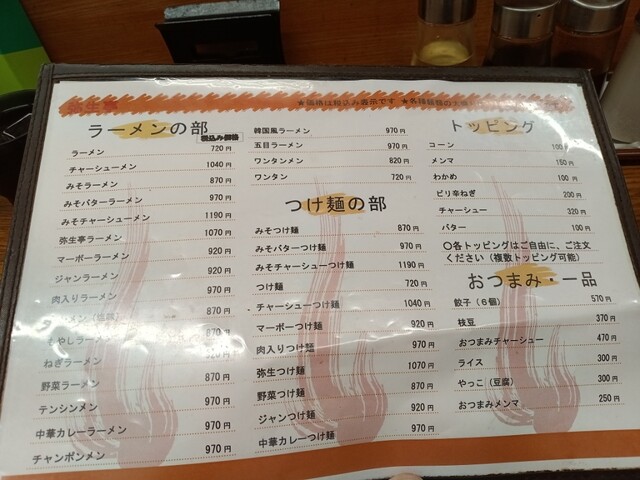 弥生亭
★価格は税込み表示です
ラーメンの部
税込み価格
ラーメン 720円
チャーシューメン 1040円
みそラーメン 870円
みそバターラーメン 970円
みそチャーシューメン 1190円
弥生亭ラーメン 1070円
マーボーラーメン 920円
ジャンラーメン 920円
肉入りラーメン 970円
870円
もやしラーメン 870円
ねぎラーメン 920円
野菜ラーメン 870円
テンシンメン 970円
中華カレーラーメン 970円
チャンポンメン 970円
韓国風ラーメン 970円
五目ラーメン 970円
ワンタンメン 820円
ワンタン 720円
つけ麺の部
みそつけ麺 870円
みそバターつけ麺 970円
みそチャーシューつけ麺 1190円
つけ麺 720円
チャーシューつけ麺 1040円
マーボーつけ麺 920円
肉入りつけ麺 970円
弥生つけ麺 1070円
野菜つけ麺 870円
ジャンつけ麺 920円
中華カレーつけ麺 970円
トッピング
コーン 100円
メンマ 150円
わかめ 100円
ピリ辛ねぎ 200円
チャーシュー 320円
バター 100円
〇各トッピングはご自由に、ご注文
ください（複数トッピング可能）
おつまみ・一品
餃子（６個） 570円
枝豆 370円
おつまみチャーシュー 470円
ライス 300円
やっこ（豆腐） 300円
おつまみメンマ 250円